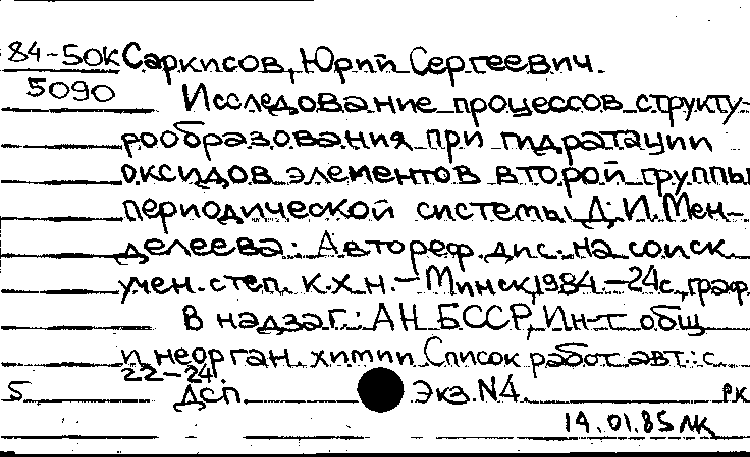 84-50К Саркисов, Юрий Сергеевич.
5090 Исследование процессов структу-
рообразования при гидратации
оксидов элементов второй группы
периодической системы Д.И. Мен-
делеева: Автореф. дис. на соиск.
учен. степ. к.х.н. - Минск, 1984. - 24 с., граф.
В надзаг.: АН БССР, Ин-т общ.
и неорган. химии Список работ авт.: с.
22-24.
5 Дсп. Экз. N4. РК
14.01.85 ЛК